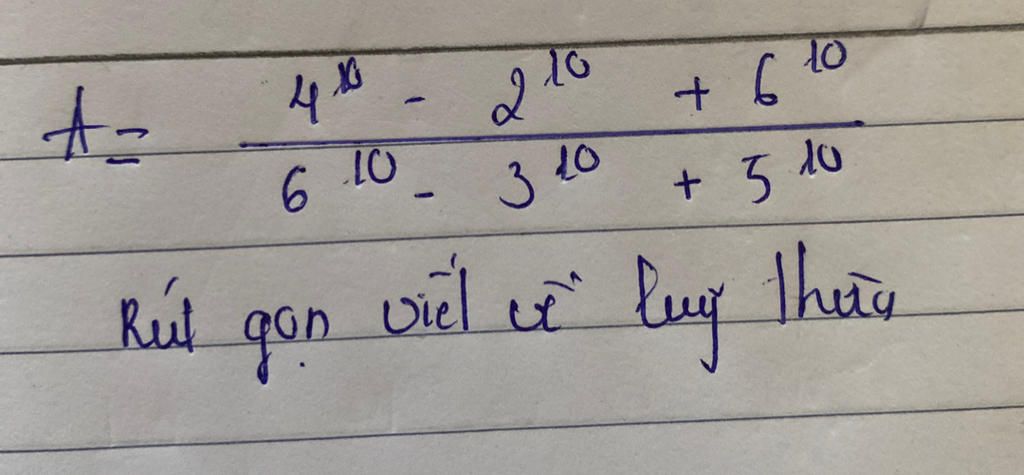 A = (4^10 - 2^10 + 6^10) / (6^10 - 3^10 + 5^10)
Rút gọn viết về luỹ thừa